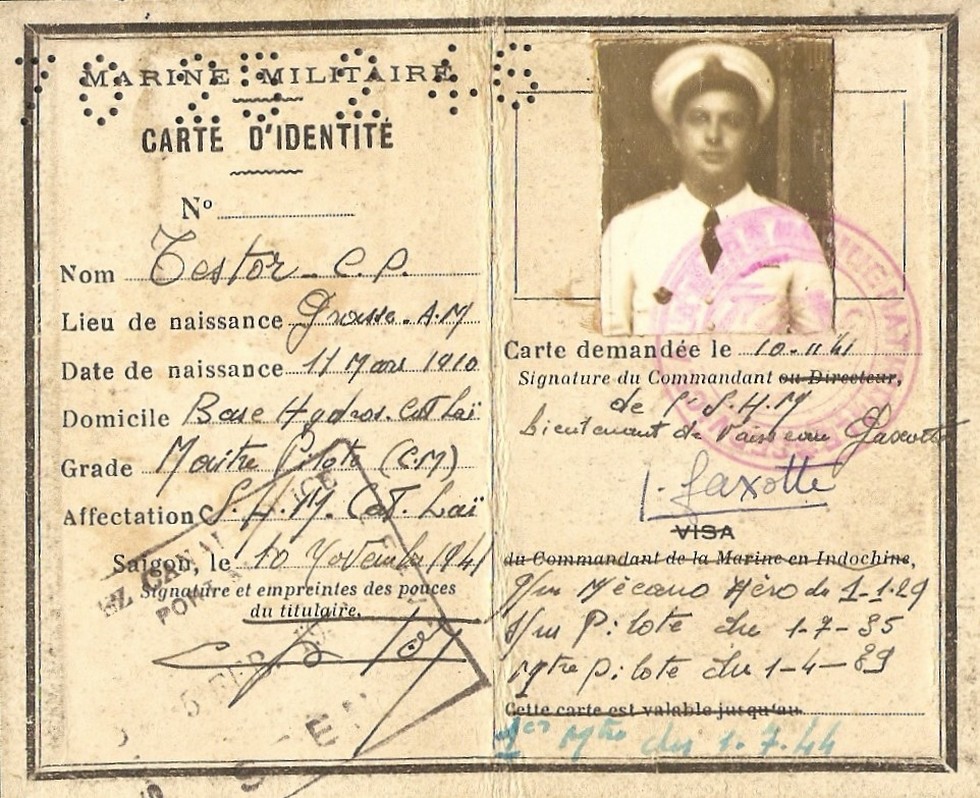 MARINE MILITAIRE
CARTE D'IDENTITÉ
Nº
Nom Testor - C. P.
Lieu de naissance Grasse. A.M
Date de naissance 11 Mars 1910
Domicile Base Hydros. Cat Laï
Grade Maitre Pilote (C.M)
Affectation S.H.M. Cat. Laï
Saigon, le 10 Novembre 1941
Signature et empreintes des pouces
du titulaire.
Carte demandée le 10-11 41
Signature du Commandant ou Directeur,
de l'S.H.M
Lieutenant de Vaisseau Gaxotte
J. Gaxotte
VISA
du Commandant de la Marine en Indochine,
q/m Mécano Aéro du 1-1-29
s/m Pilote du 1-7-35
mtre pilote du 1-4-39
Cette carte est valable jusqu'au
1er Mtre du 1.7.44
CANAL
5 FEB